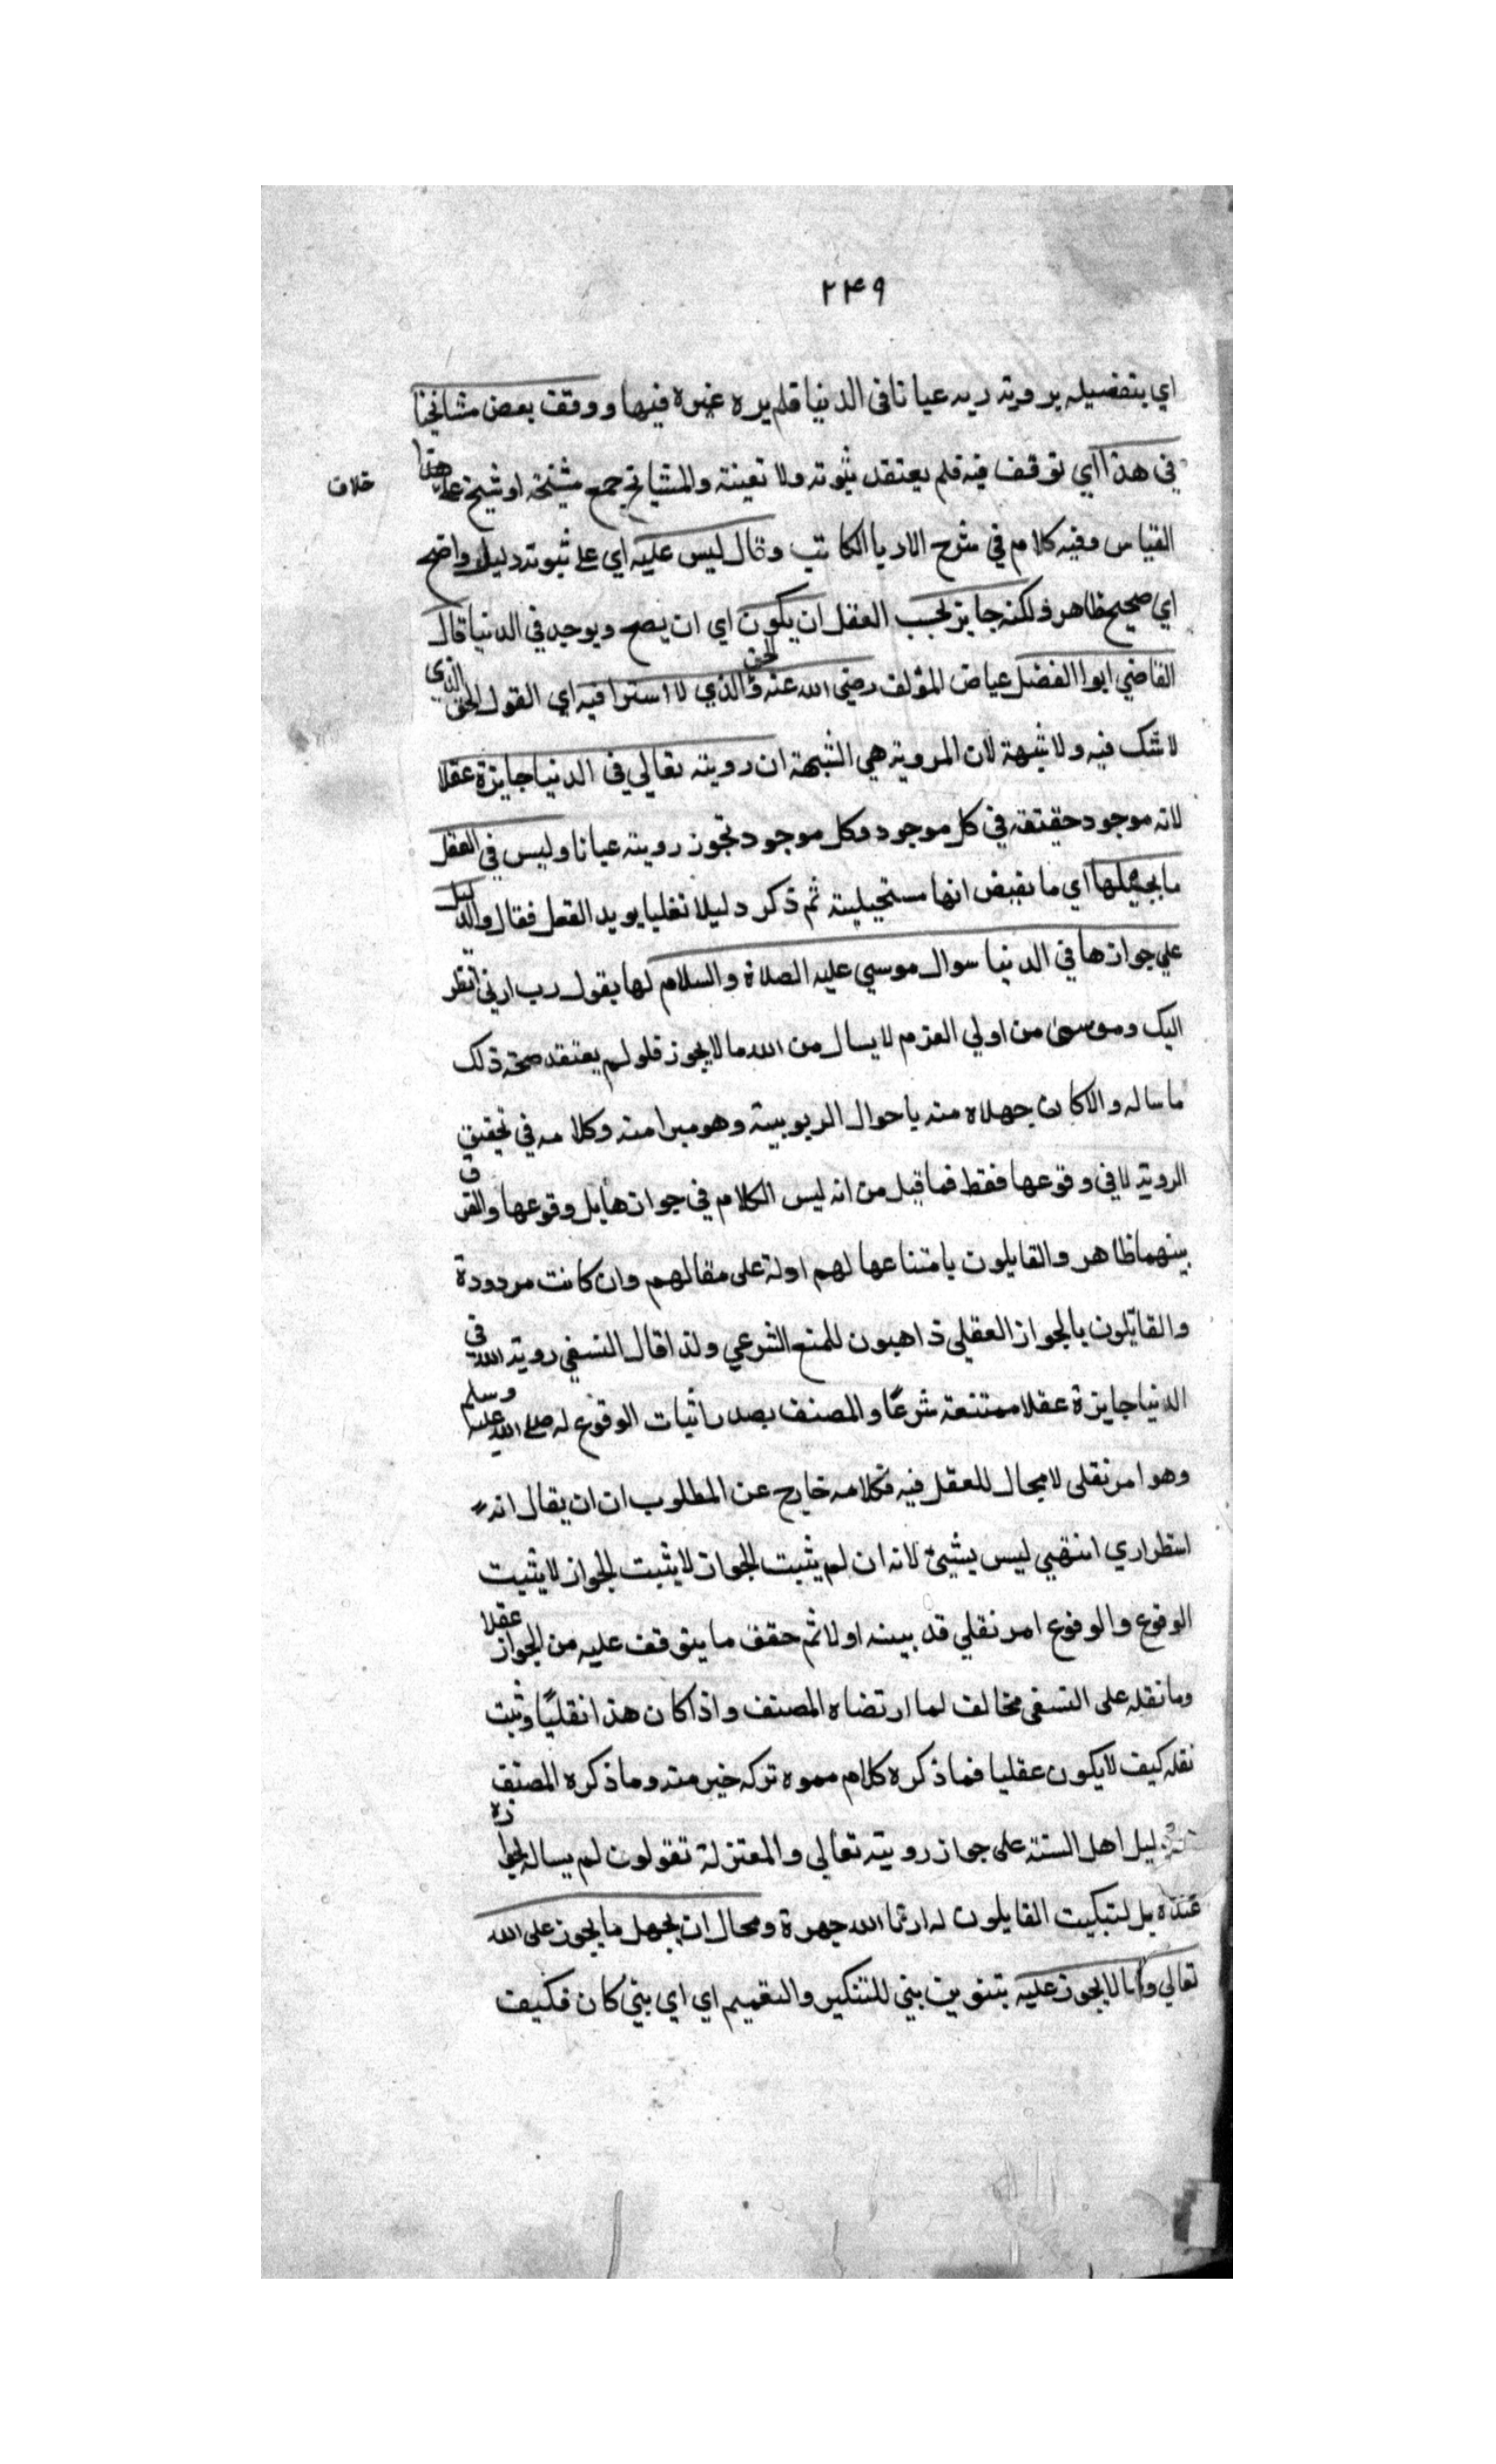 ٢٤٩
اي بتفضيله برويته ربه عيانا في الدنيا فلم يره غيره فيها ووقف بعض مشايخنا
في هذا اي توقف فيه فلم يعتقد ثبوته ولا تعينه والمشايخ جمع مشيخة او شيخ على هذا
خلاف
القياس وفيه كلام في شرح الادب الكاتب وقال ليس عليه اي على ثبوته دليل واضح
اي صحيح ظاهر ولكنه جايز بحسب العقل ان يكون اي ان يصح ويوجد في الدنيا قال
القاضي ابوا الفضل عياض المؤلف رضي الله عنه والحق الذي لا استرا فيه اي القول الحق الذي
لا شك فيه ولا شبهة لان المروية هي الشبهة ان رويته تعالي في الدنيا جايزة عقلا
لانه موجود حقيقة في كل موجود وكل موجود تجوز رويته عيانا وليس في العقل
ما يحيلها اي ما يقبض انها مستحيلية ثم ذكر دليلا نقليا يويد العقل فقال والدليل
علي جوازها في الدنيا سوال موسي عليه الصلاة والسلام لها بقول رب ارني انظر
اليك وموسى من اولي العزم لا يسال من الله ما لا يجوز فلو لم يعتقد صحة ذلك
ما ساله والا كان جهلاه منه باحوال الربوبية وهو مبرا منه وكلامه في تحقيق
الروية لا في وقوعها فقط فما قيل من انه ليس الكلام في جوازها بل وقوعها والفرق
بينهما ظاهر والقايلون بامتناعها لهم اولة على مقالهم وان كانت مردودة
والقائلون بالجواز العقلي ذاهبون للمنع الشرعي ولذا قال النسفي روية الله في
الدنيا جايزة عقلا ممتنعة شرعًا والمصنف بصدد اثبات الوقوع له صلى الله عليه وسلم
وهو امر نقلي لا مجال للعقل فيه فكلامه خارج عن المطلوب ان ان يقال انه
استطراري انتهيي ليس بشيئ لانه ان لم يثبت الجواز لا يثبت الجواز لا يثبت
الوقوع والوقوع امر نقلي قد بينه اولا ثم حقق ما يتوقف عليه من الجواز عقلا
وما نقله على النسفي مخالف لما ارتضاه المصنف واذا كان هذا نقليًا وثبت
نقله كيف لا يكون عقليا فما ذكره كلام مموه تركه خير منه وما ذكره المصنف
دليل اهل السنة على جواز رويته تعالي والمعتزلة تقولون لم يساله لجوازه
عنده بل لتبكيت القايلون له ارنا الله جهرة ومحال ان يجهل ما يجوز على الله
تعالي وما لا يجوز عليه بتنوين نبي للتنكير والتعميم اي اي نبي كان فكيف